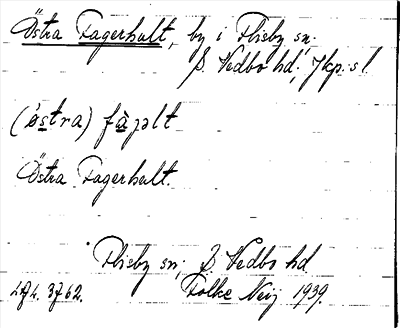 Östra Fagerhult, by i Flisby sn.
S. Vedbo hd, Jkp. sl.
(östra) fàjəlt
Östra Fagerhult.
Flisby sn, S. Vedbo hd
474. 3762. Folke Neij 1939.